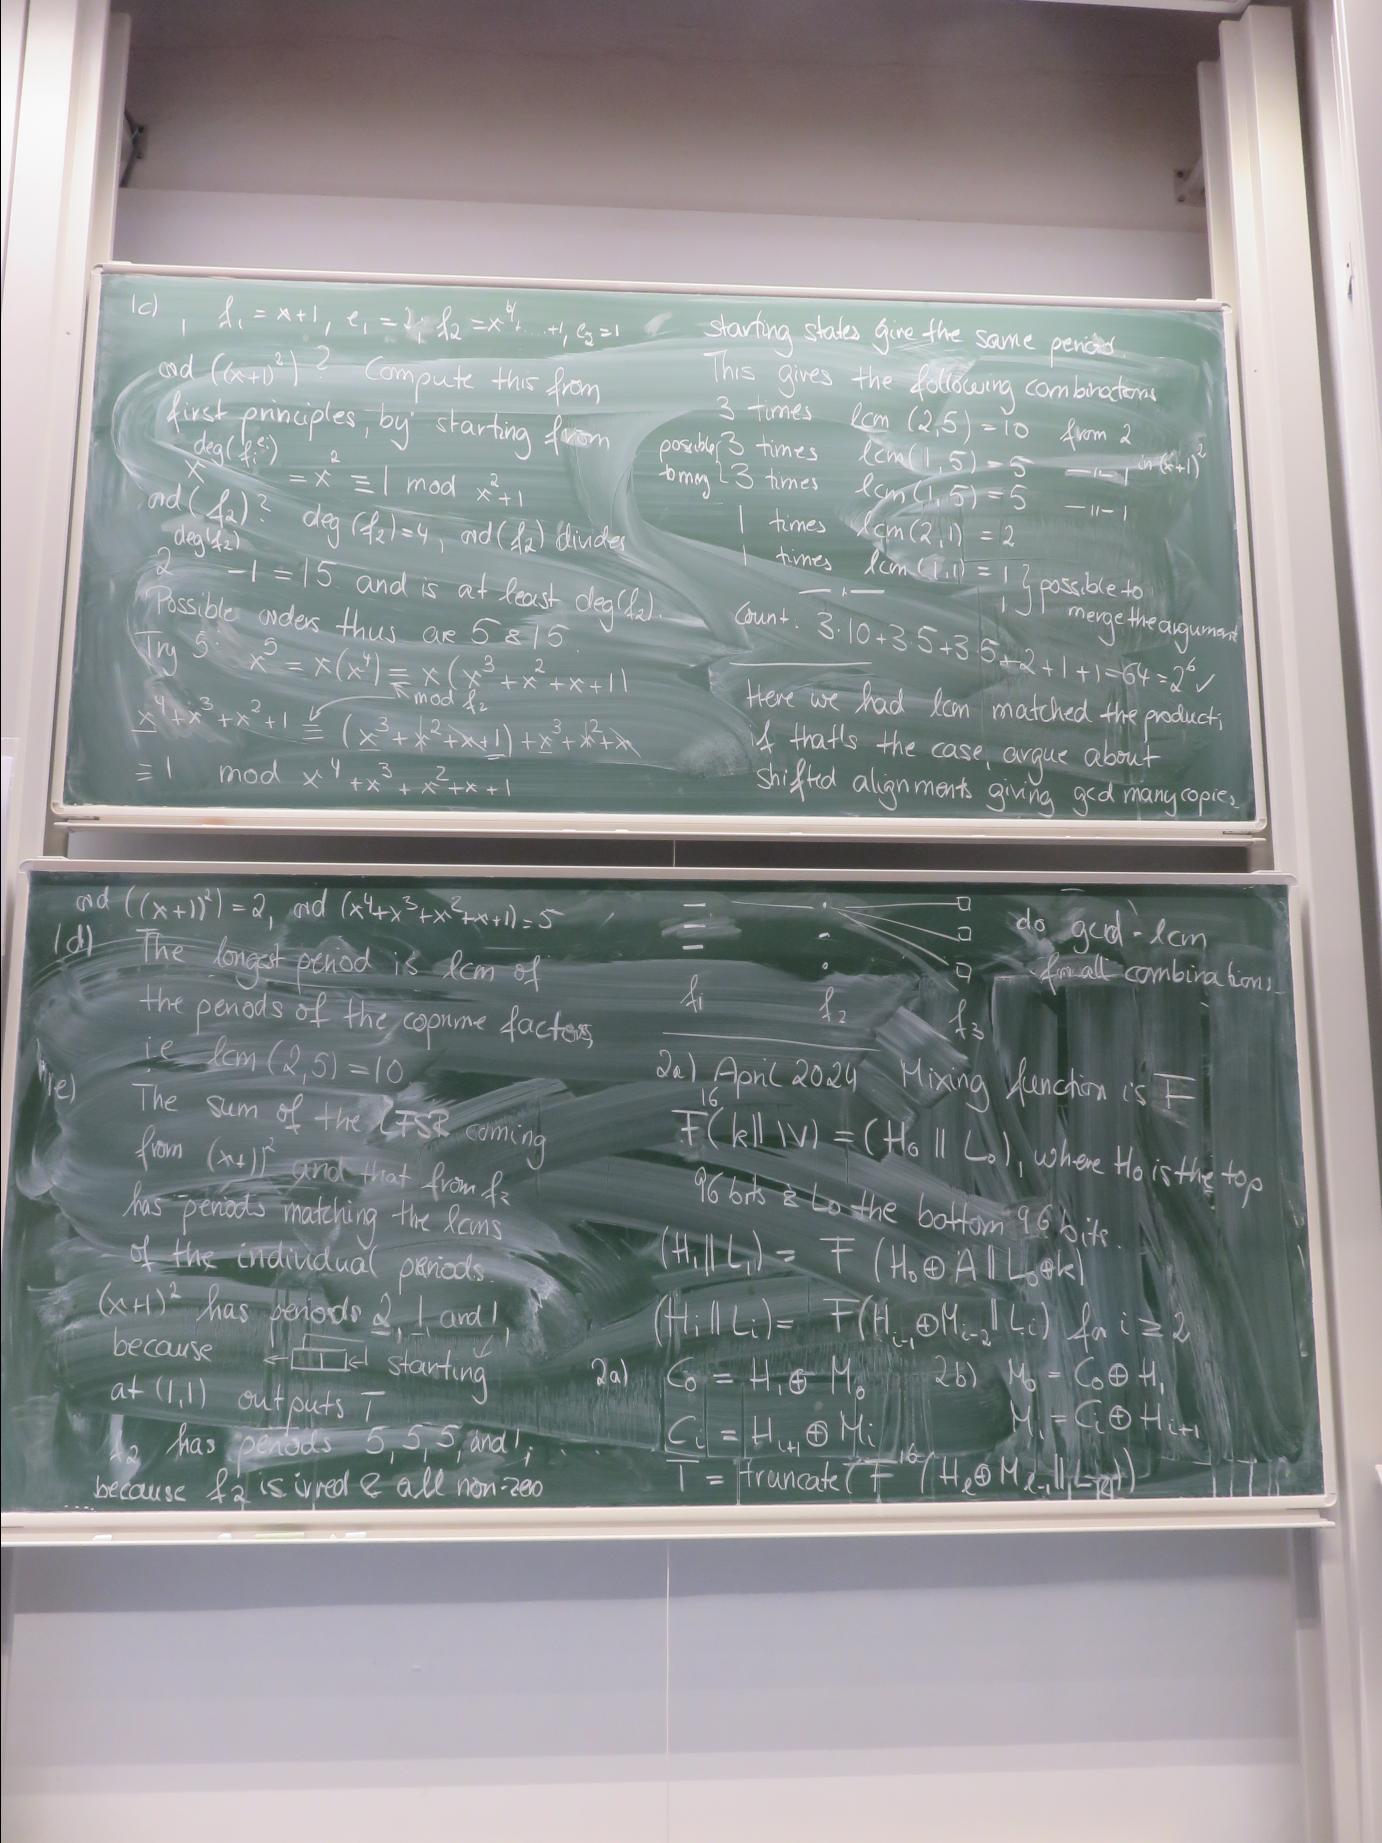 1c) f₁ = x+1, e₁ = 2, f₂ = x⁴+...+1, e₂=1
ord ((x+1)²)? Compute this from
first principles, by starting from
x^deg(f_i^{e_i}) = x² ≡ 1 mod x²+1
ord(f₂)? deg(f₂)=4, ord(f₂) divides
2^deg(f₂) -1 = 15 and is at least deg(f₂).
Possible orders thus are 5 & 15.
Try 5: x⁵ = x(x⁴) ≡ x(x³+x²+x+1)
mod f₂
x⁴+x³+x²+1 ≡ (x³+x²+x+1)+x³+x²+x
≡ 1 mod x⁴+x³+x²+x+1
starting states give the same period.
This gives the following combinations
3 times lcm (2,5) = 10 from 2
possible 3 times lcm(1,5) = 5 —"— 1 in (x+1)²
to merg 3 times lcm(1,5) = 5 —"— 1
1 times lcm(2,1) = 2
1 times lcm(1,1) = 1 } possible to
—"— 1 merge the argument
Count: 3·10+3·5+3·5+2+1+1=64=2⁶ ✓
Here we had lcm matched the product;
if that's the case, argue about
shifted alignments giving gcd many copies.
ord ((x+1)²) = 2, ord (x⁴+x³+x²+x+1) = 5
1d) The longest period is lcm of
the periods of the coprime factors,
i.e. lcm (2,5) = 10
1e) The sum of the LFSR coming
from (x+1)² and that from f₂
has periods matching the lcms
of the individual periods.
(x+1)² has periods 2, 1 and 1,
because starting
at (1,1) outputs 1
f₂ has periods 5, 5, 5, and 1,
because f₂ is irred & all non-zero
do gcd · lcm
for all combinations
f₁ f₂ f₃
2a) April 2024 Mixing function is F
F¹⁶(k || IV) = (H₀ || L₀), where H₀ is the top
96 bits & L₀ the bottom 96 bits.
(H₁||L₁) = F (H₀⊕A || L₀⊕k)
(Hᵢ||Lᵢ) = F(Hᵢ₋₁⊕Mᵢ₋₂||Lᵢ) for i ≥ 2
2a) C₀ = H₁ ⊕ M₀ 2b) M₀ = C₀ ⊕ H₁
Cᵢ = Hᵢ₊₁ ⊕ Mᵢ Mᵢ = Cᵢ ⊕ Hᵢ₊₁
T = truncate(F¹⁶(H_ℓ⊕M_ℓ₋₁||